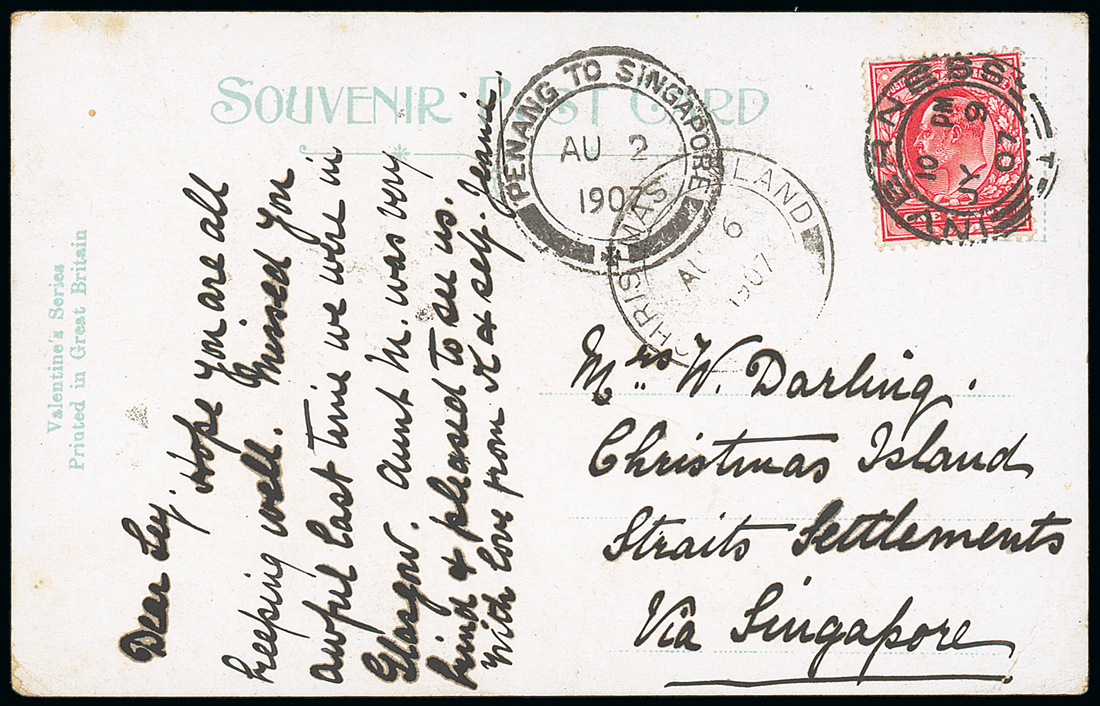 SOUVENIR POST CARD
Valentine's Series
Printed in Great Britain
PENANG TO SINGAPORE
AU 2
1907
CHRISTMAS ISLAND
AU 6
1907
INVERNESS
10 PM
JY 9
07
Dear Ley. Hope you are all
keeping well. Missed you
awful last time we were in
Glasgow. Aunt M. was very
kind & pleased to see us.
With love from & self. Jeanie.
Mrs W. Darling.
Christmas Island
Straits Settlements
Via Singapore